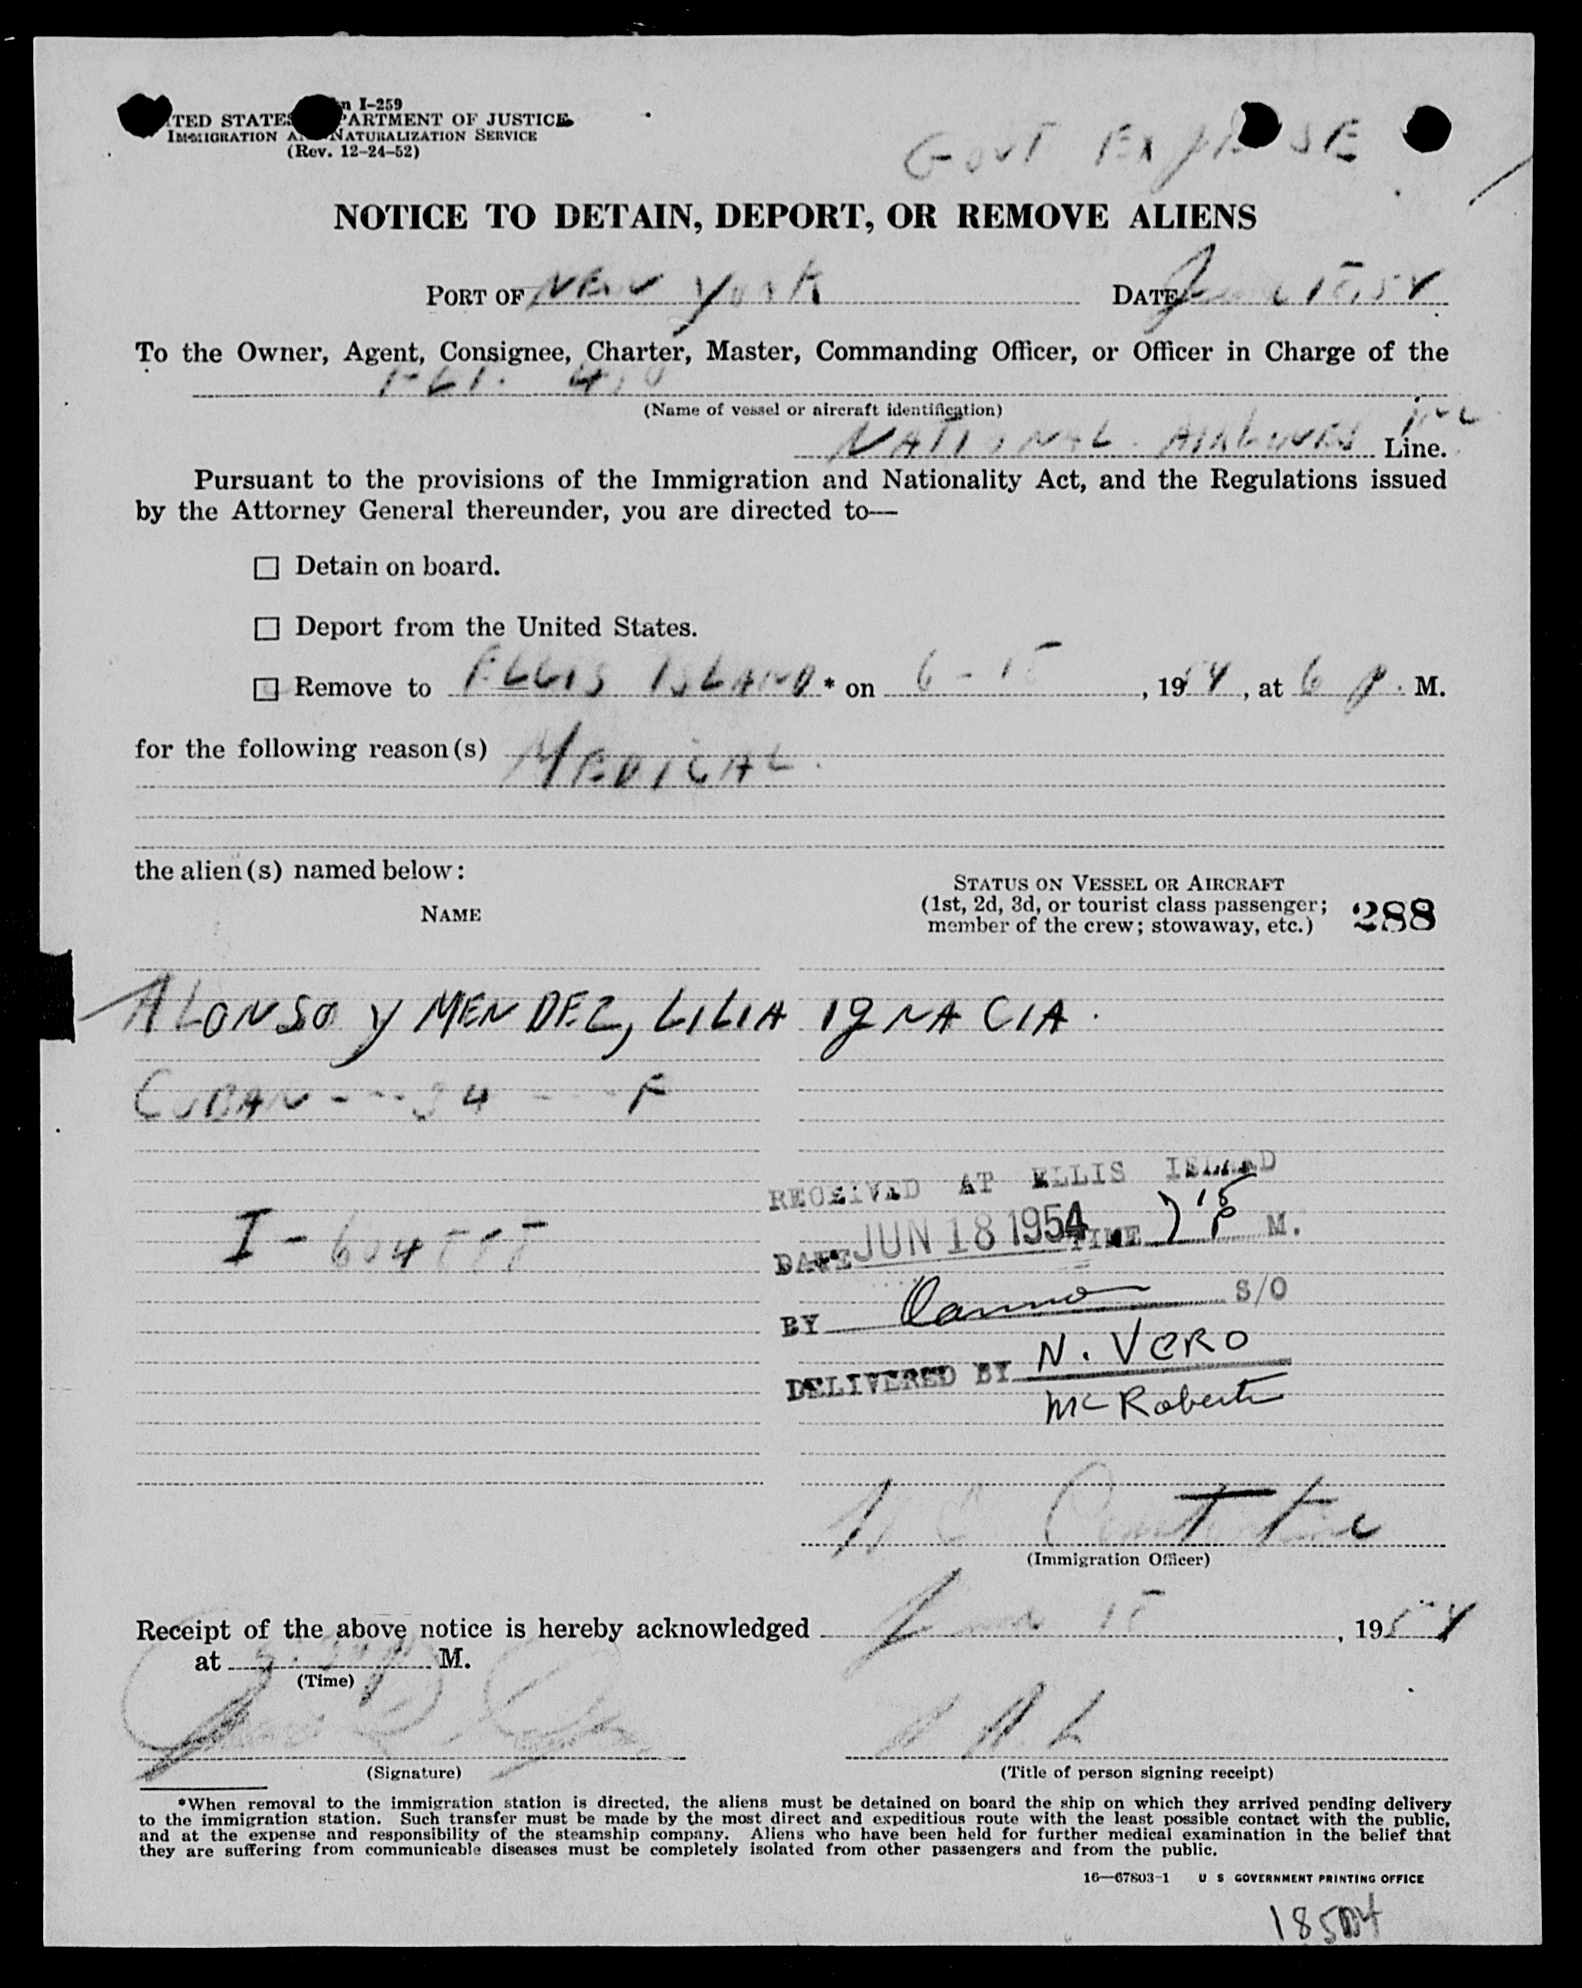 I-259
UNITED STATES DEPARTMENT OF JUSTICE
IMMIGRATION AND NATURALIZATION SERVICE
(Rev. 12-24-52)
GOVT EXPENSE
NOTICE TO DETAIN, DEPORT, OR REMOVE ALIENS
PORT OF NEW YORK DATE June 18, 54
To the Owner, Agent, Consignee, Charter, Master, Commanding Officer, or Officer in Charge of the
FLT. 410
(Name of vessel or aircraft identification)
NATIONAL AIRLINES INC Line.
Pursuant to the provisions of the Immigration and Nationality Act, and the Regulations issued
by the Attorney General thereunder, you are directed to—
☐ Detain on board.
☐ Deport from the United States.
☐ Remove to ELLIS ISLAND * on 6-18, 1954, at 6 P. M.
for the following reason(s) MEDICAL.
the alien(s) named below:
NAME
STATUS ON VESSEL OR AIRCRAFT
(1st, 2d, 3d, or tourist class passenger;
member of the crew; stowaway, etc.)
288
ALONSO y MENDEZ, LILIA IGNACIA.
CUBAN --- 34 --- F
I-604
RECEIVED AT ELLIS ISLAND
DATE JUN 18 1954 TIME 7 15 P M.
BY Cannon S/O
DELIVERED BY N. VERO
McRoberts
(Immigration Officer)
Receipt of the above notice is hereby acknowledged June 18, 1954
at M.
(Time)
(Signature)
(Title of person signing receipt)
*When removal to the immigration station is directed, the aliens must be detained on board the ship on which they arrived pending delivery
to the immigration station. Such transfer must be made by the most direct and expeditious route with the least possible contact with the public,
and at the expense and responsibility of the steamship company. Aliens who have been held for further medical examination in the belief that
they are suffering from communicable diseases must be completely isolated from other passengers and from the public.
16—67803-1 U S GOVERNMENT PRINTING OFFICE